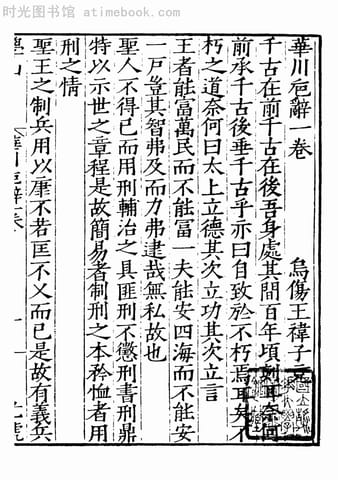 时光图书馆 atimebook.com
華川卮辭一卷 烏傷王禕子充
千古在前千古在後吾身處其間百年頃刻耳奈何
前承千古後垂千古乎亦曰自致於不朽焉耳矣不
朽之道奈何曰太上立德其次立功其次立言
王者能富萬民而不能富一夫能安四海而不能安
一戶豈其智弗及而力弗逮哉無私故也
聖人不得已而用刑輔治之具匪刑不懲刑書刑鼎
特以示世之章程是故簡易者制刑之本矜恤者用
刑之情
聖王之制兵用以不若匡不乂而已是故有義兵